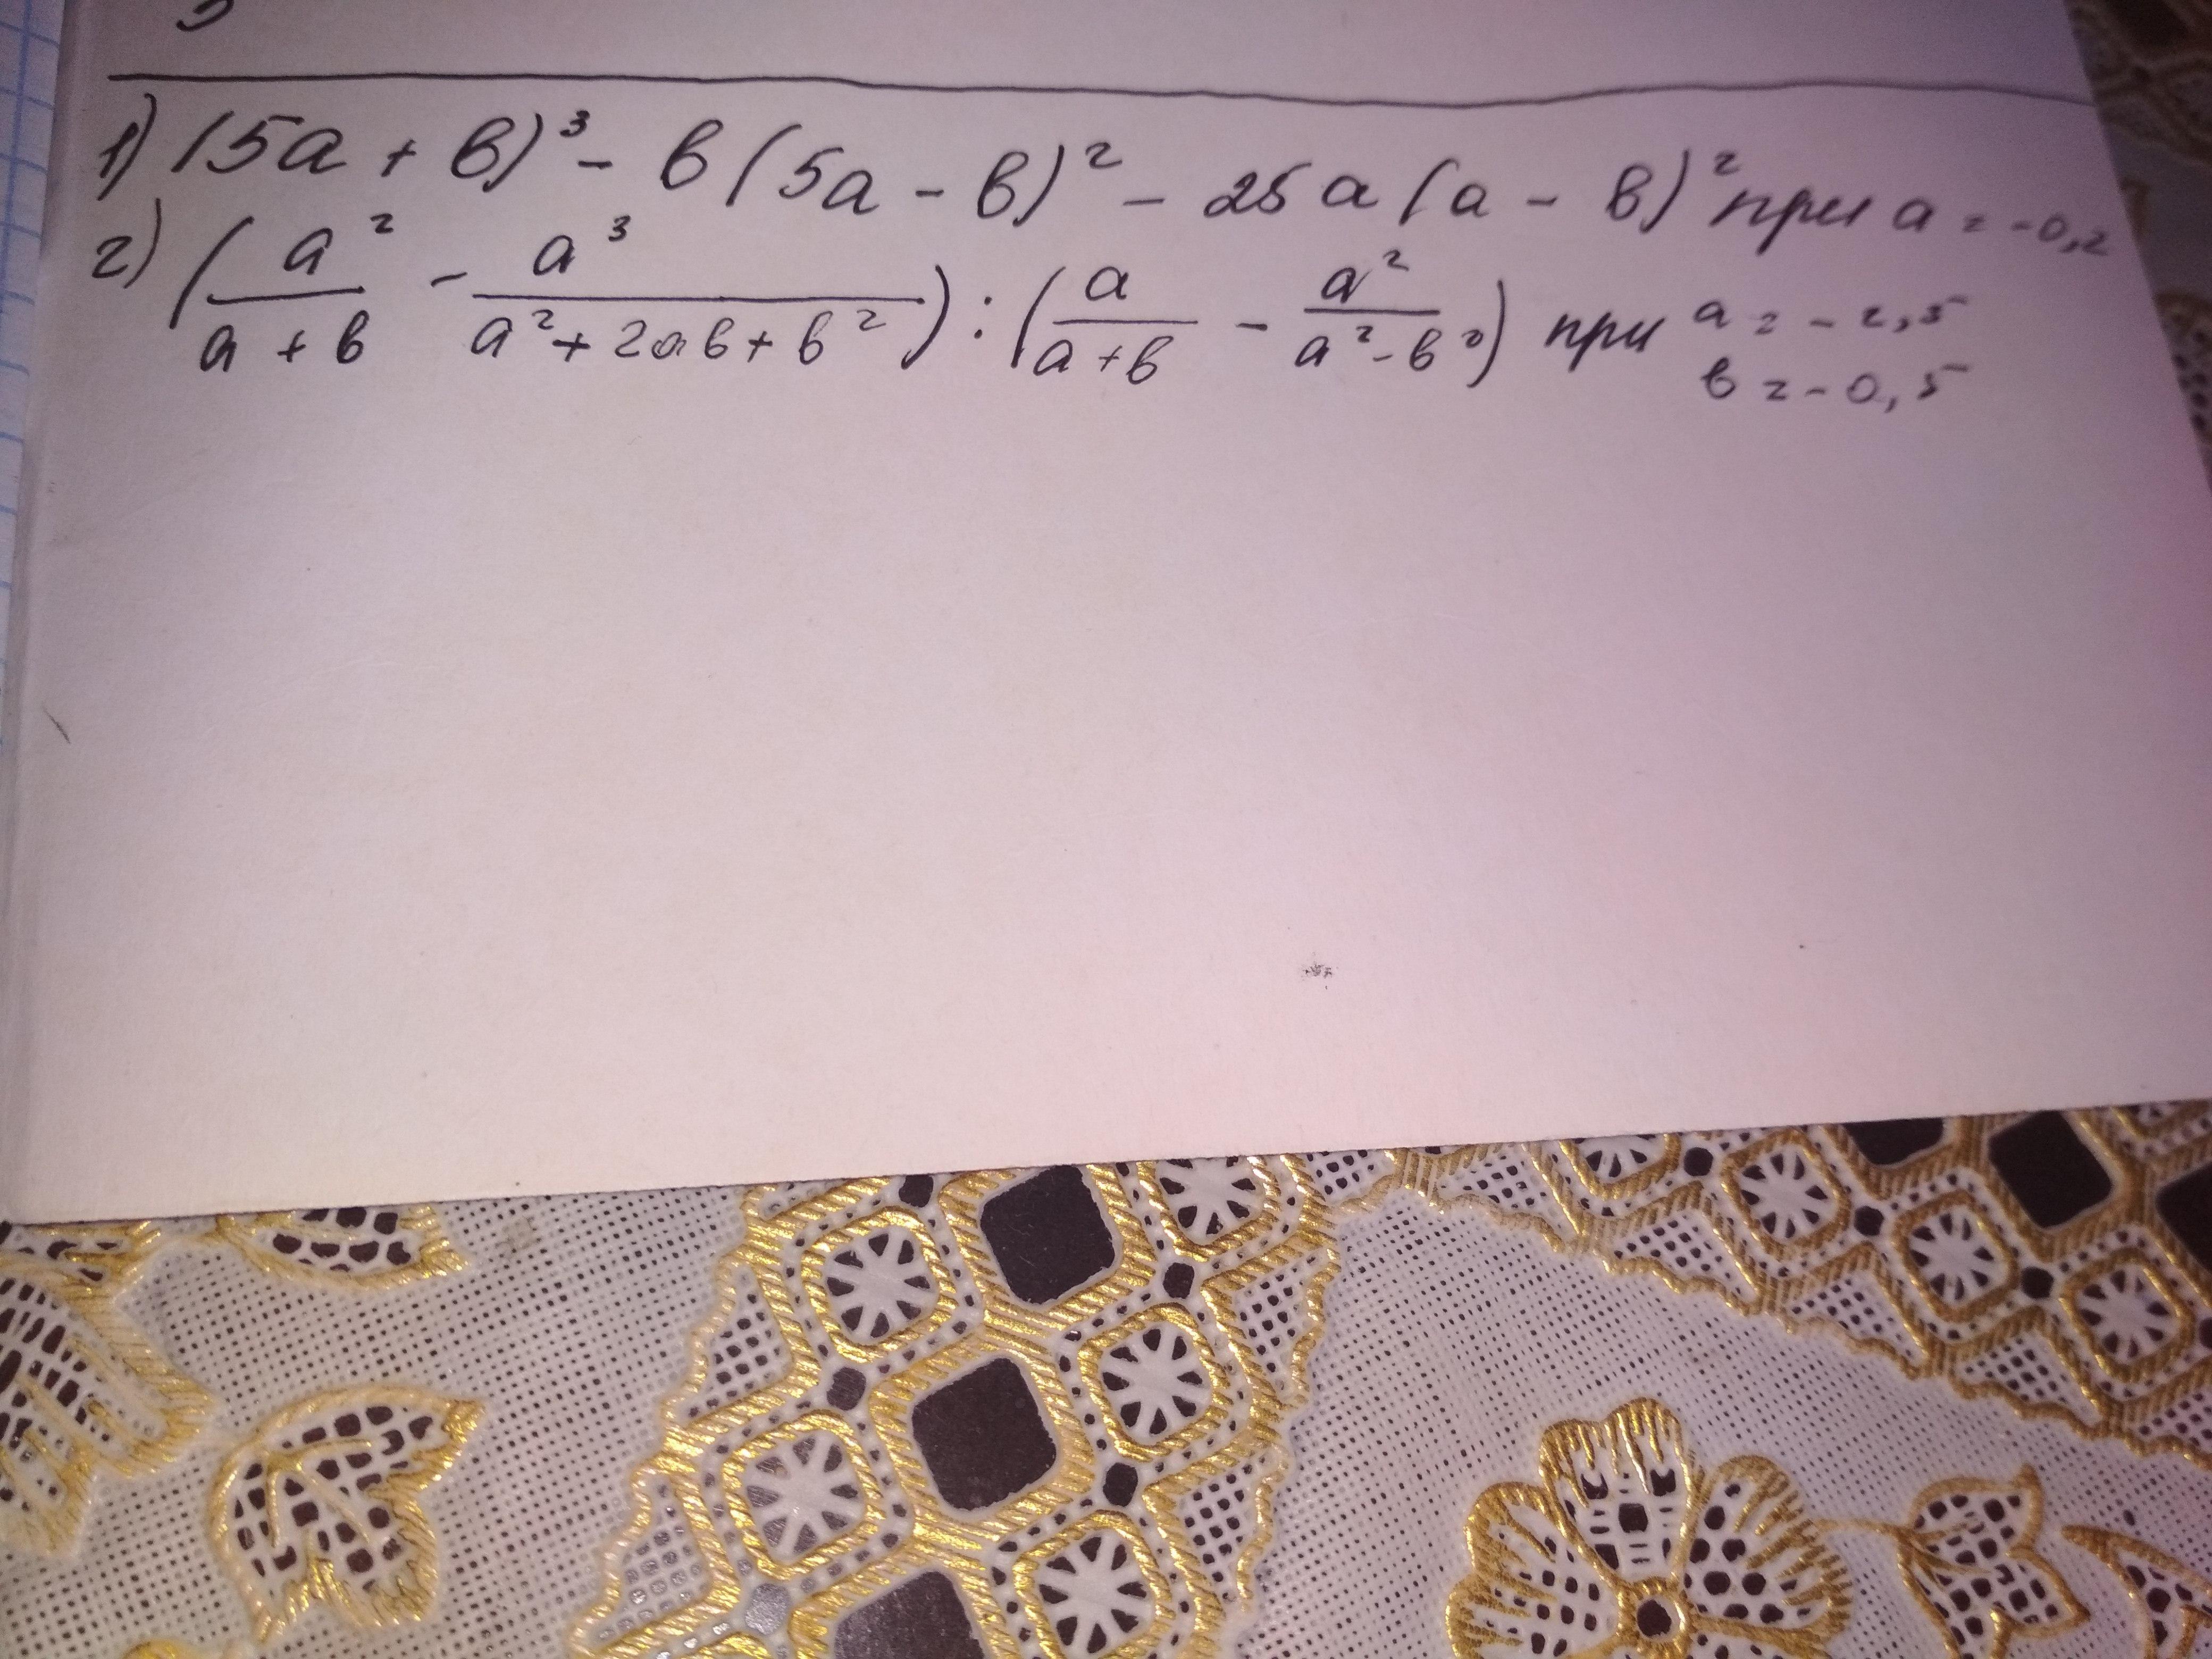 1) (5a + b)³ - b (5a - b)² - 25 a (a - b)² при a = -0,2
2) (a²/(a + b) - a³/(a² + 2ab + b²)) : (a/(a + b) - a²/(a² - b²)) при a = -2,5
b = -0,5